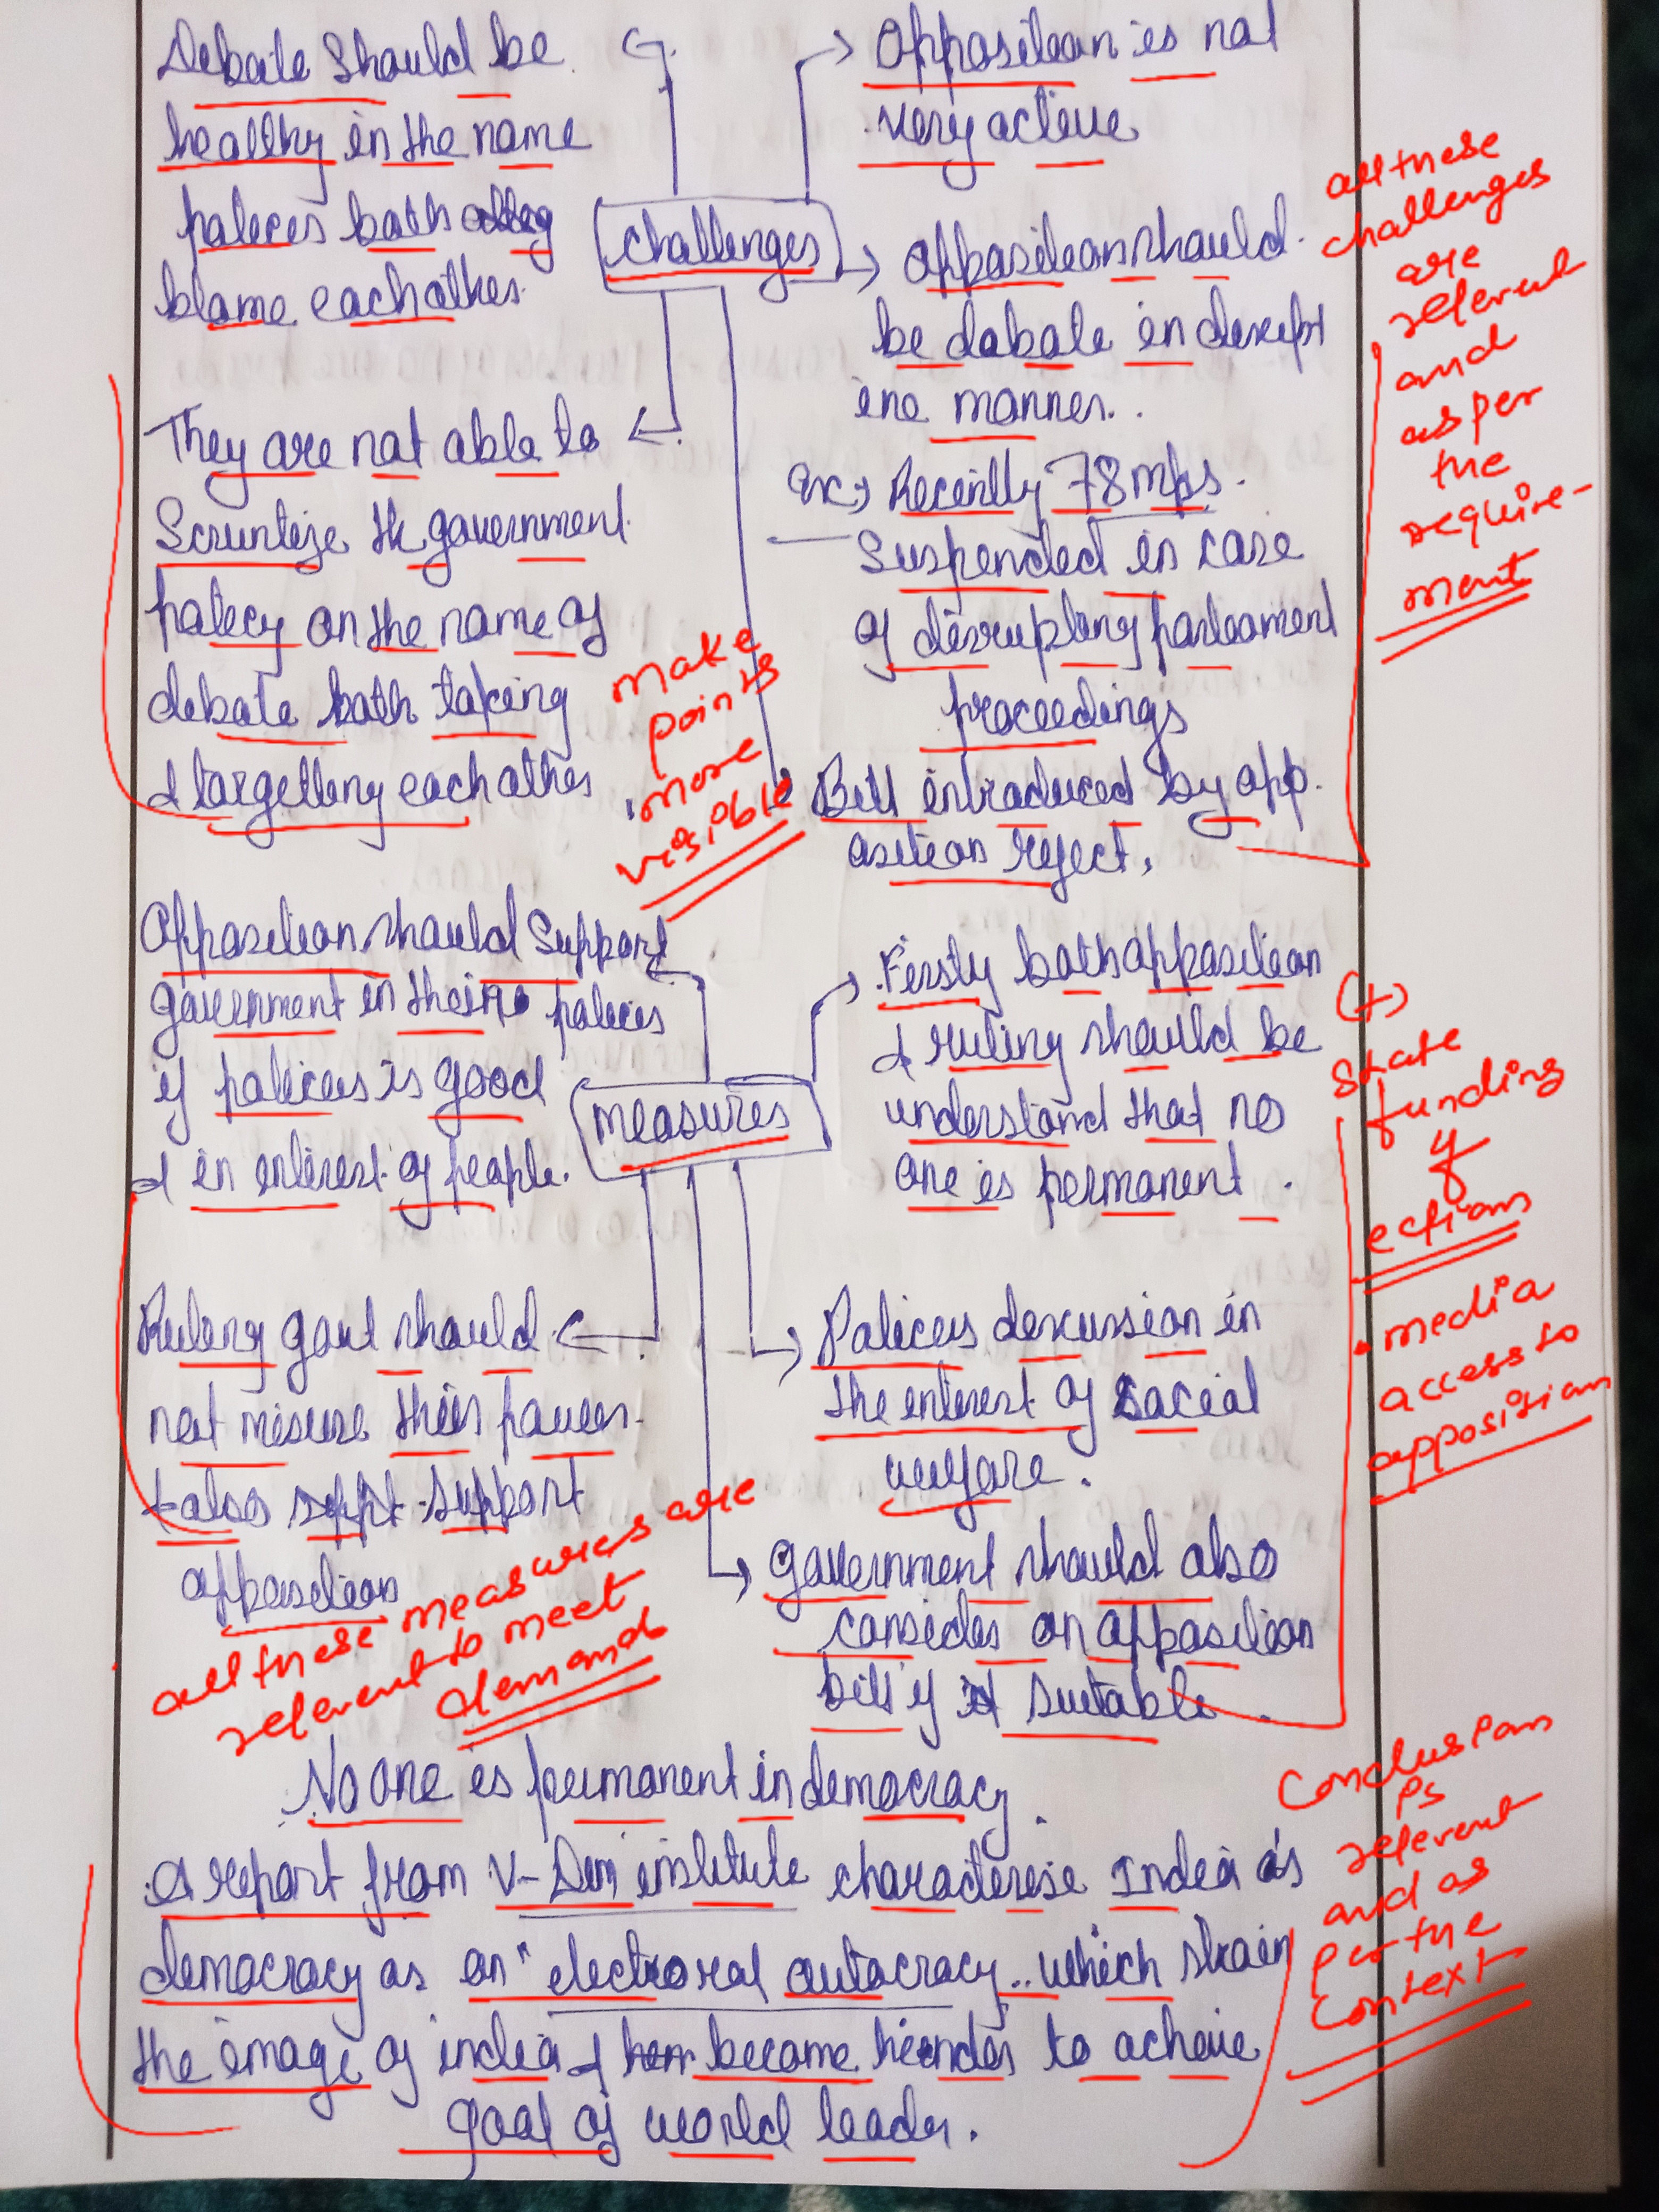 Debate should be
healthy in the name
polices both
blame each other.
Opposition is not
very active
challenges
opposition should
be dabate in
ine manner.
ex → Recently 78 mps.
Suspended in case
of disrupting parliament
proceedings
Bill introduced by opp.
osition reject.
They are not able to
Scruntize the government
policy on the name of
debate both taking
& targetting each other
make
points
more
visible
all these
challenges
are
relevent
and
as per
the
require-
ment
Opposition should support
government in their policies
if policies is good
& in interest of people.
measures
Firstly both opposition
& ruling should be
understand that no
one is permanent.
Ruling govt should
not misuse their power
& also support
opposition
Policies discussion in
the interest of social
welfare.
government should also
consider on opposition
bill if suitable.
(+)
state
funding
of
ections
• media
access to
opposition
all these measures are
relevent to meet
demand
No one is permanent in democracy.
A report from V-Dem institute characterise India as
democracy as an "electoral autocracy" which strain
the image of india & become hinder to achieve
goal of world leader.
conclusion
is
relevent
and as
per the
context